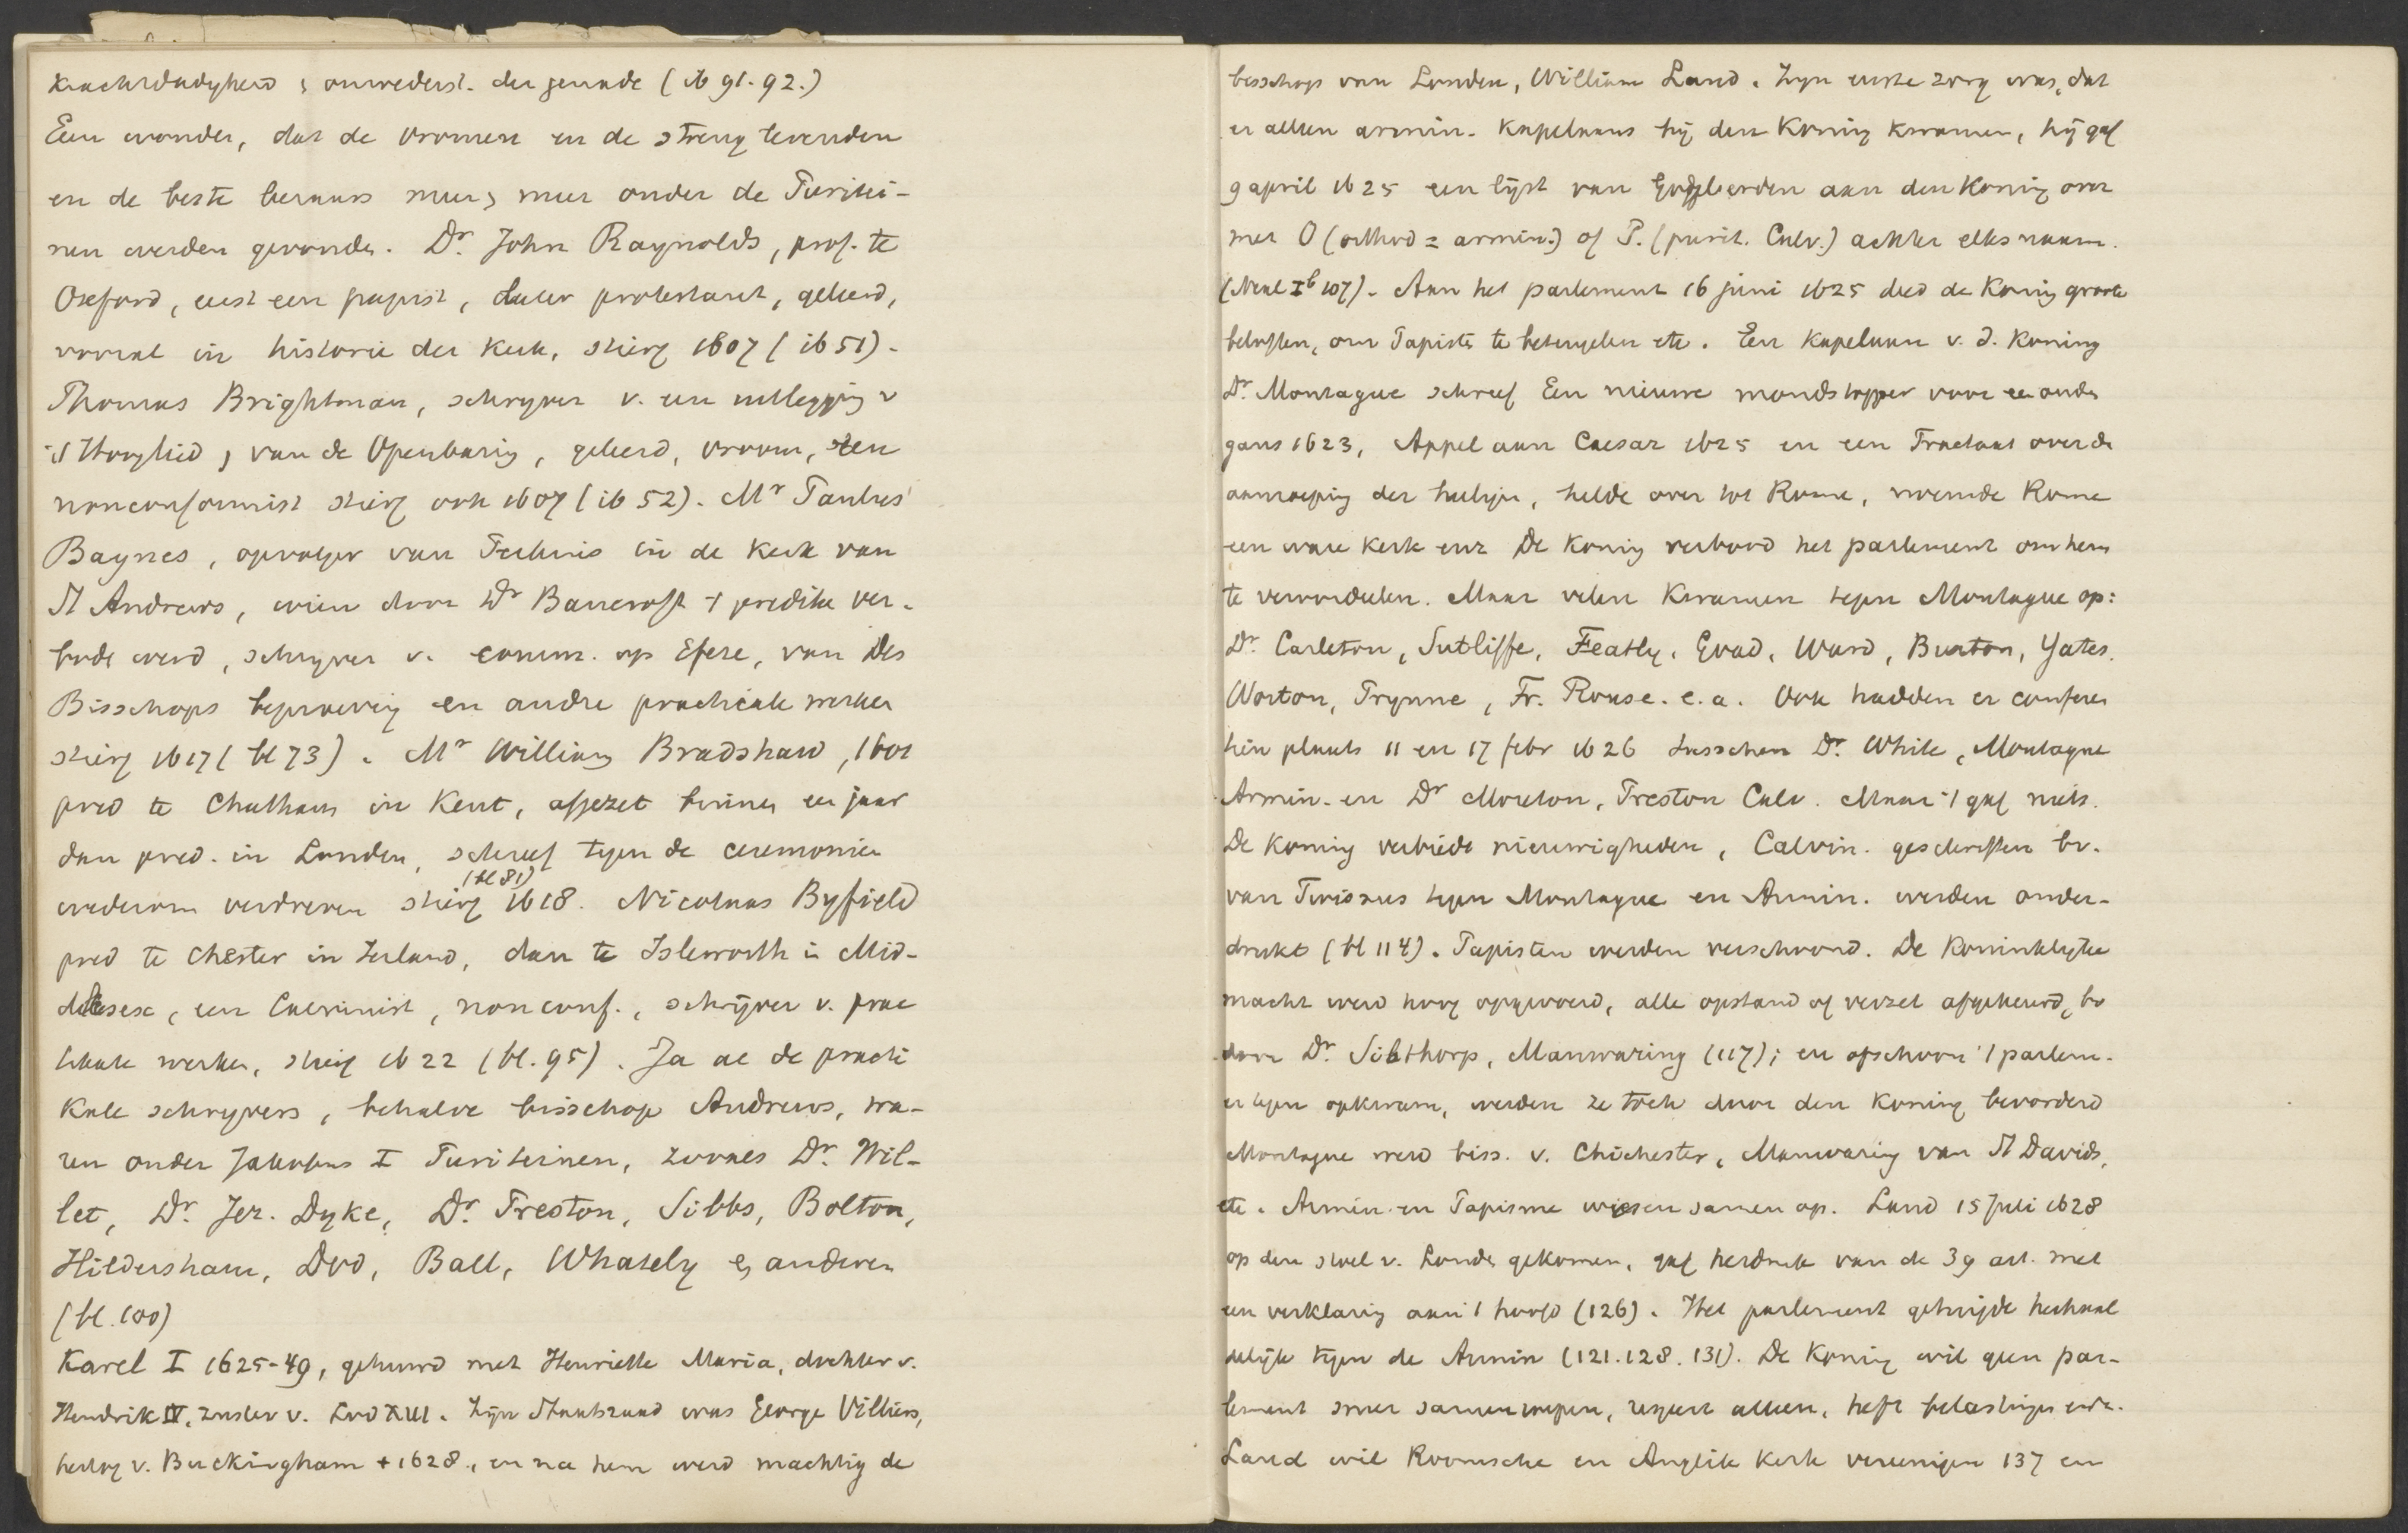 krachtdadigheid & onwederst. der genade (ib 91.92.)
Een wonder, dat de vromen en de streng levenden
en de beste leraars meer & meer onder de Puritei-
nen werden gevonden. Dr. John Raynolds, prof. te
Oxford, eerst een papist, later protestant, geleerd,
vooral in historie der kerk, stierf 1607 (ib 51).
Thomas Brightman, schryver v. een uitlegging v
't Hooglied & van de Openbaring, geleerd, vroom, een
nonconformist stierf ook 1607 (ib 52). Mr Paulus
Baynes, opvolger van Perkins in de kerk van
St Andrews, wien door Dr Bancroft 't prediken ver-
boden werd, schryver v. comm. op Efeze, van Des
Bisschops beproeving en andre practicale werken
stierf 1617 (bl 73). Mr William Bradshaw, 1601
pred te Chatham in Kent, afgezet binnen een jaar
dan pred. in Londen, schreef tegen de ceremonien
(bl 81)
wederom verdreven stierf 1618. Nicolaas Byfield
pred te Chester in Ierland, dan te Isleworth in Mid-
dlesex, een Calvinist, nonconf., schrijver v. prac
ticale werken, stierf 1622 (bl. 95). Ja al de practi
kale schryvers, behalve bisschop Andrews, wa-
ren onder Jakobus I Puriteinen, zooals Dr. Wil-
let, Dr. Jer. Dyke, Dr. Preston, Sibbs, Bolton,
Hildersham, Dod, Ball, Whately & anderen
(bl. 100)
Karel I 1625-49, gehuwd met Henriette Maria, dochter v.
Hendrik IV, zuster v. Lod XIII. Zijn Staatsraad was George Villiers,
hertog v. Buckingham + 1628, en na hem werd machtig de
bisschop van Londen, William Laud. Zyn eerste zorg was, dat
er alleen armin. kapelaans bij den Koning kwamen, hij gaf
9 april 1625 een lijst van Godgeleerden aan den Koning over
met O (orthod = armin.) of P. (purit. Calv.) achter elks naam.
(Neal Ib 107). Aan het parlement 16 juni 1625 deed de Koning groote
beloften, om Papisten te beteugelen etc. Een kapelaan v. d. Koning
Dr. Montague schreef Een nieuwe mondstopper voor een oude
gans 1623, Appel aan Caesar 1625 en een Tractaat over de
aanroeping der heiligen, helde over tot Rome, noemde Rome
een ware kerk enz De Koning verbood het parlement om hem
te veroordeelen. Maar velen kwamen tegen Montague op:
Dr. Carleton, Sutliffe, Featly, Goad, Ward, Burton, Yates,
Worton, Prynne, Fr. Rouse. e.a. Ook hadden er conferen
tiën plaats 11 en 17 febr 1626 tusschen Dr. White, Montague
Armin. en Dr Morton, Preston Calv. Maar 't gaf niets.
De Koning verbiedt nieuwigheden, Calvin. geschriften bv.
van Twissus tegen Montague en Armin. werden onder-
drukt (bl 114). Papisten werden verschoond. De Koninklyke
macht werd hoog opgevoerd, alle opstand of verzet afgekeurd, bv
door Dr. Sibthorp, Manwaring (117); en ofschoon 't parlem.
er tegen opkwam, werden ze toch door den Koning bevorderd
Montague werd biss. v. Chichester, Manwaring van St Davids,
etc. Armin en Papisme wiesen samen op. Laud 15 Juli 1628
op den stoel v. Londen gekomen, gaf herdruk van de 39 art. met
een verklaring aan 't hoofd (126). Het parlement getuigde herhaal
delijk tegen de Armin (121.128.131). De Koning wil geen par-
lement meer samenroepen, regeert alleen, heft belastingen enz.
Laud wil Roomsche en Anglik kerk vereenigen 137 en